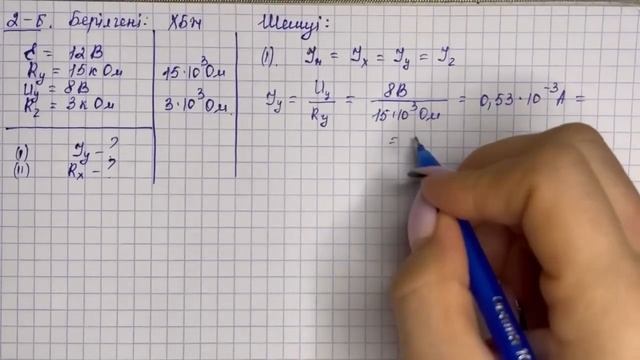 2-Б. Берілгені: ХБЖ Шешуі:
ℰ = 12 В
R_y = 15 кОм 15·10³ Ом
U_y = 8 В
R_z = 3 кОм 3·10³ Ом
(I) I_y - ?
(II) R_x - ?
(I). I_н = I_x = I_y = I_z
I_y = U_y / R_y = 8В / 15·10³ Ом = 0,53·10⁻³ А =
=